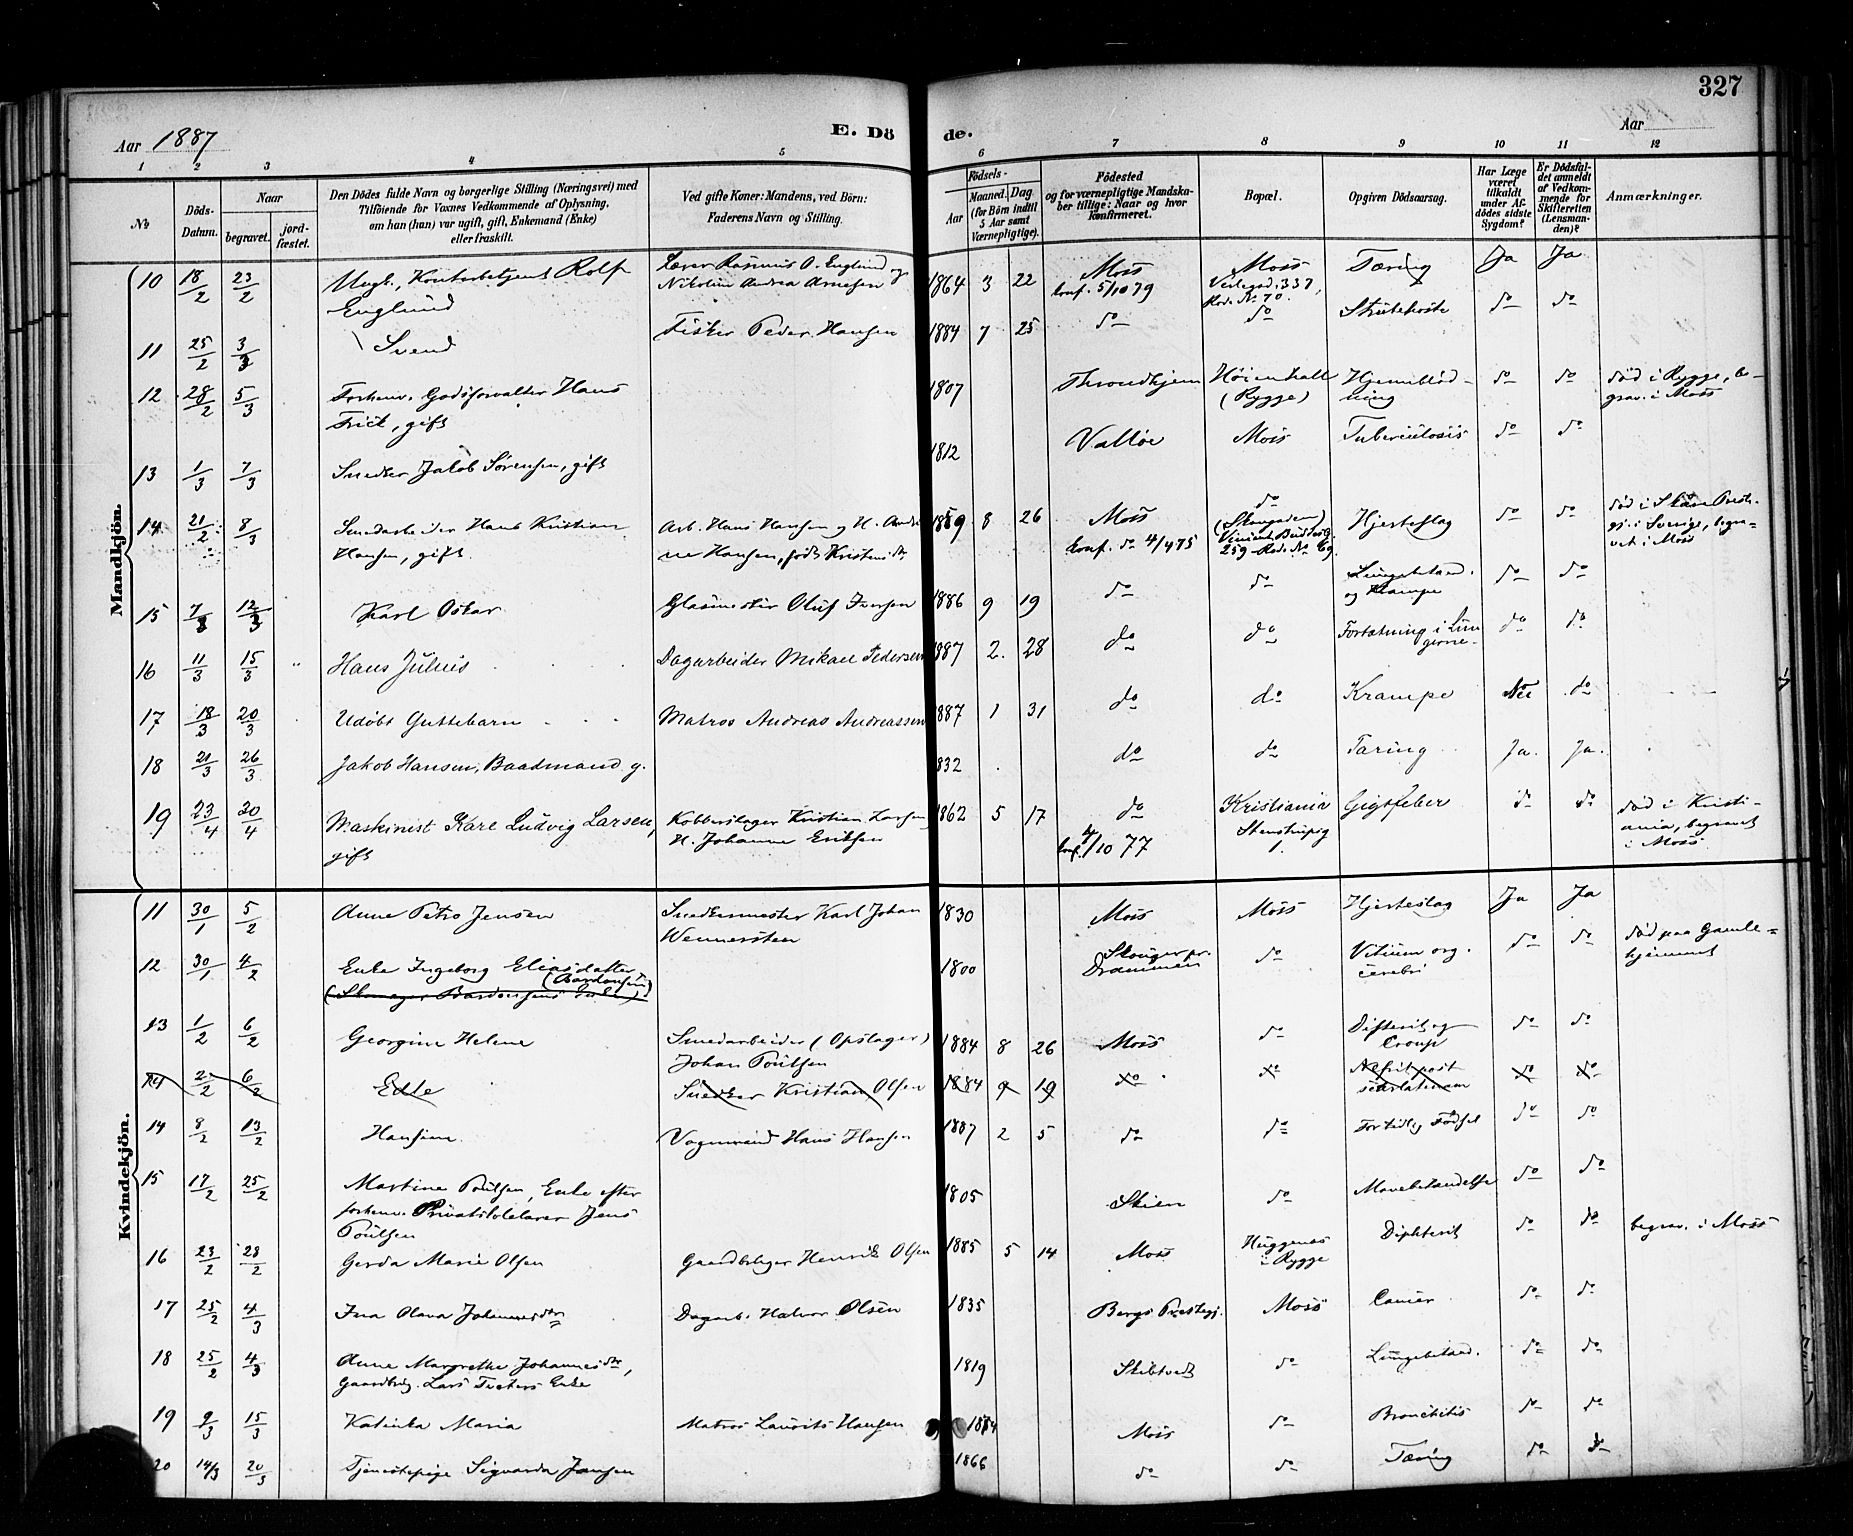 327
Aar 1887
E. Dö
de.
Aar
1 2 3 4 5 6 7 8 9 10 11 12
No
Döds-Datum.
Naar
begravet.
jord-fæstet.
Den Dödes fulde Navn og borgerlige Stilling (Næringsvei) med
Tilföiende for Voxnes Vedkommende af Oplysning,
om han (hun) var ugift, gift, Enkemand (Enke)
eller fraskilt.
Ved gifte Koner: Mandens, ved Börn:
Faderens Navn og Stilling.
Födsels-
Aar
Maaned. Dag.
(for Börn indtil
5 Aar samt
Værnepligtige).
Födested
og for værnepligtige Mandska-
ber tillige: Naar og hvor
konfirmeret.
Bopæl.
Opgiven Dödsaarsag.
Har Læge
været
tilkaldt
under Af-
dödes sidste
Sygdom?
Er Dödsfal-
det anmeldt
af Vedkom-
mende for
Skifteretten
(Lensman-
den)?
Anmærkninger.
Mandkjön.
10 18/2 23/2 Ungk., Kontorbetjent Rolf Englund Lærer Rasmus O. Englund og Nikoline Andrea Arnesen 1864 3 22 Moss konf. 5/10 79 Moss 337, Rod. No 70. Tæring Ja Ja
11 25/2 3/3 Svend Fisker Peder Hansen 1884 7 25 do do Strubehoste do do
12 28/2 5/3 Forhenv. Godsforvalter Hans Frick, gift 1807 Throndhjem Höienhall (Rygge) Hjerneblöd-ning do do död i Rygge, be-grav. i Moss
13 1/3 7/3 Snedker Jakob Sörensen, gift 1812 Vallöe Moss Tuberculosis do do
14 21/2 8/3 Smedarbeider Hans Kristian Hansen, gift Arb. Hans Hansen og H. Andrine Hansen, födt Kristensdr 1859 8 26 Moss konf. do 4/4 75 do 259 Rod. No 69. Hjerteslag do do död i Sverige, begra-vet i Moss
15 7/3 12/3 Karl Oskar Glasmester Oluf Iversen 1886 9 19 do do Lungebetænd. og Krampe do do
16 11/3 15/3 Hans Julius Dagarbeider Mikael Pedersen 1887 2. 28 do do Fortætning i Lungerne do do
17 18/3 20/3 Udöbt Guttebarn Matros Andreas Andreassen 1887 1 31 do do Krampe Nei do
18 21/3 26/3 Jakob Hansen, Baadmand g. 1832 do do Tæring Ja. Ja.
19 23/4 30/4 Maskinist Karl Ludvig Larsen, gift Kobberslager Kristian Larsen, H. Johanne Eriksen 1862 5 17 do konf. /10 77 Kristiania Stenstrupsg 1. Gigtfeber do do död i Kristi-ania, begravet i Moss
Kvindekjön.
11 30/1 5/2 Anne Petro Jensen Snedkermester Karl Johan Wennersteen 1830 Moss Moss Hjerteslag Ja Ja
12 30/1 4/2 Enke Ingeborg Eliasdatter (Bardonsen) 1800 Skouger pr. Drammen do Vitium org. cerebri do do död paa Gamle-hjemmet
13 1/2 6/2 Georgine Helene Smedarbeider (Opslager) Johan Poulsen 1884 8 26 Moss do Difterit og Croup do do
14 2/2 6/2 Edle Snedker Kristian Olsen 1884 9 19 do do Nefrit post scarlatinam do do
14 8/2 13/2 Hansine Vognmand Hans Hansen 1887 2 5 do do For tidlig Födsel do do
15 17/2 25/2 Martine Poulsen, Enke efter forhenv. Privatskolelærer Jens Poulsen 1805 Skien do do do
16 23/2 28/2 Gerda Marie Olsen Gaardbruger Henrik Olsen 1885 5 14 Moss Huggenes i Rygge Diphterit do do begrav. i Moss
17 25/2 4/3 Ina Olava Johannesdtr Dagarb. Halvor Olsen 1835 Bergs Præstegj. Moss Cancer do do
18 25/2 4/3 Anne Margrethe Johannesdtr, Gaardbrug. Lars Enke 1819 Skibtvedt do Lungebetænd. do do
19 9/3 15/3 Katinka Maria Matros Laurits Hansen 1884 Moss do Bronchitis do do
20 14/3 20/3 Tjenestepige Sigvarda Jansen 1866 do do Tæring do do